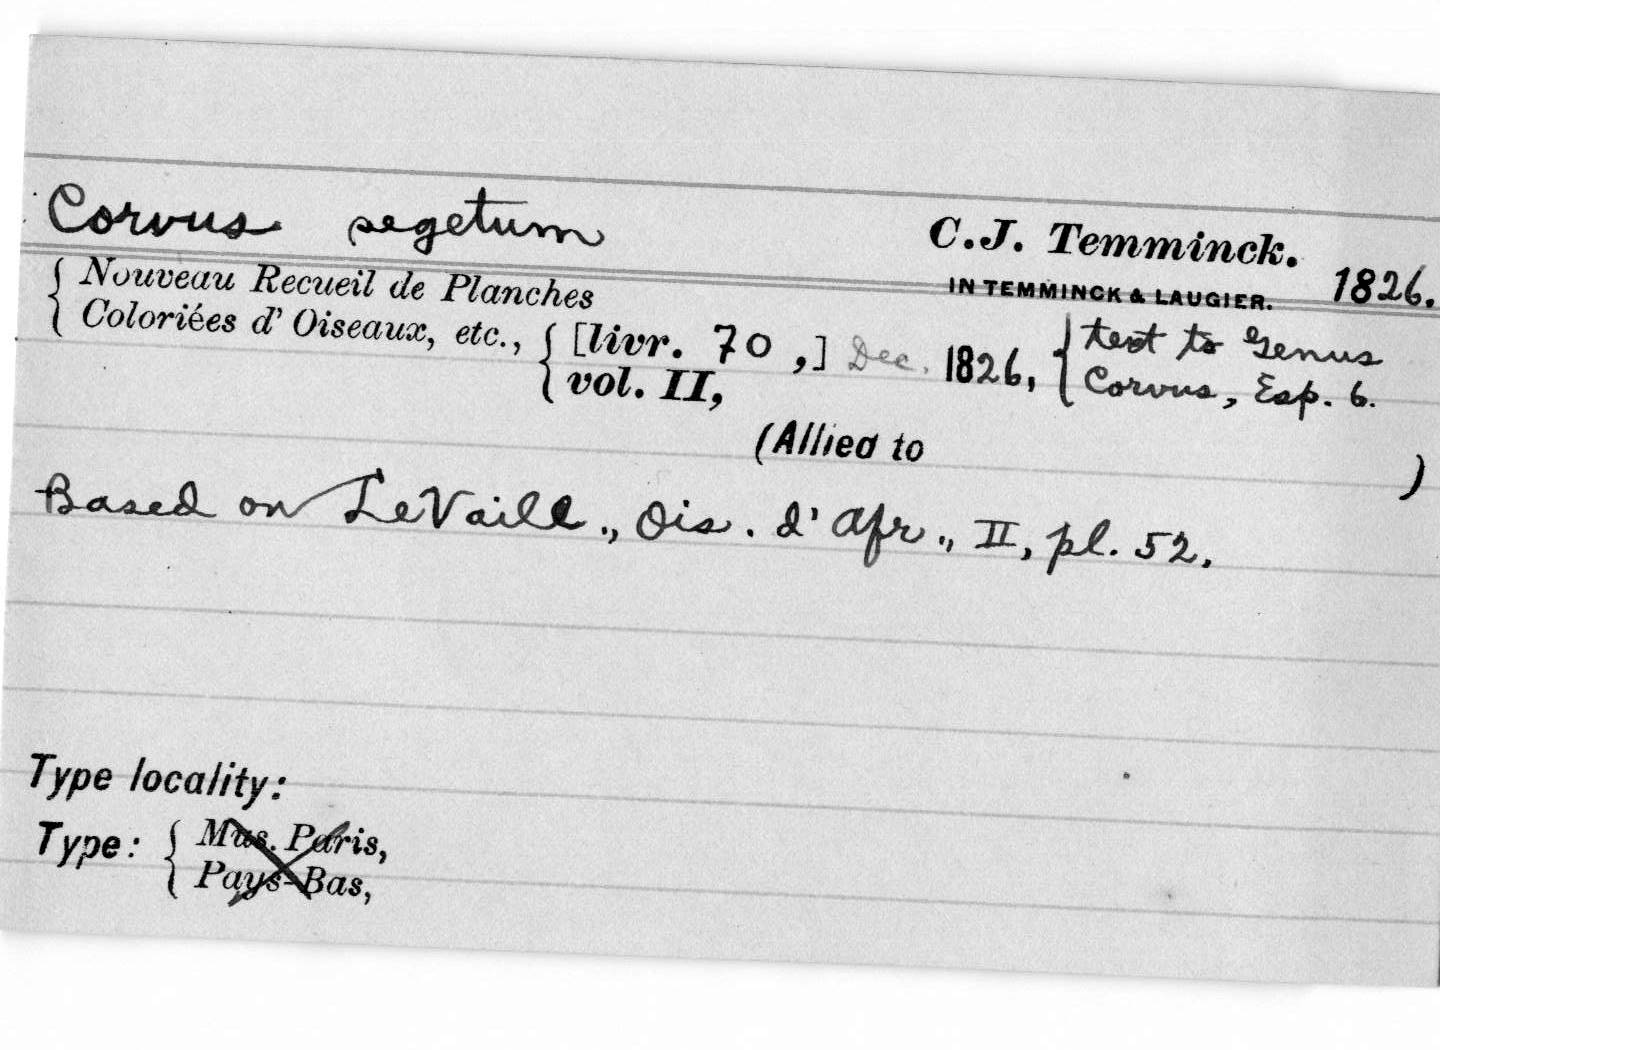 Corvus segetum C.J. Temminck. 1826.
IN TEMMINCK & LAUGIER.
{ Nouveau Recueil de Planches
Coloriées d' Oiseaux, etc., { [livr. 70 ,] Dec. 1826, { text to Genus
vol. II, Corvus, Esp. 6.
(Allied to )
Based on LeVaill., Ois. d' Afr., II, pl. 52.
Type locality:
Type: { Mus. Paris,
Pays-Bas,